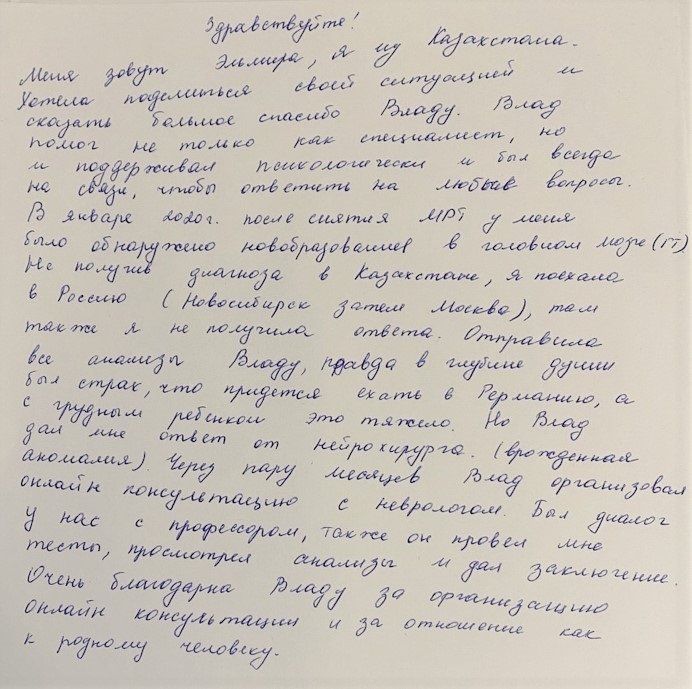 Здравствуйте!
Меня зовут Эльмира, я из Казахстана.
Хотела поделиться своей ситуацией и
сказать большое спасибо Владу. Влад
помог не только как специалист, но
и поддерживал психологически и был всегда
на связи, чтобы ответить на любые вопросы.
В январе 2020г. после снятия МРТ у меня
было обнаружено новообразование в головном мозге (ГТ)
Не получив диагноза в Казахстане, я поехала
в Россию (Новосибирск затем Москва), там
также я не получила ответа. Отправила
все анализы Владу, правда в глубине души
был страх, что придется ехать в Германию, а
с грудным ребенком это тяжело. Но Влад
дал мне ответ от нейрохирурга. (врожденная
аномалия). Через пару месяцев Влад организовал
онлайн консультацию с неврологом. Был диалог
у нас с профессором, также он провел мне
тесты, просмотрел анализы и дал заключение.
Очень благодарна Владу за организацию
онлайн консультации и за отношение как
к родному человеку.